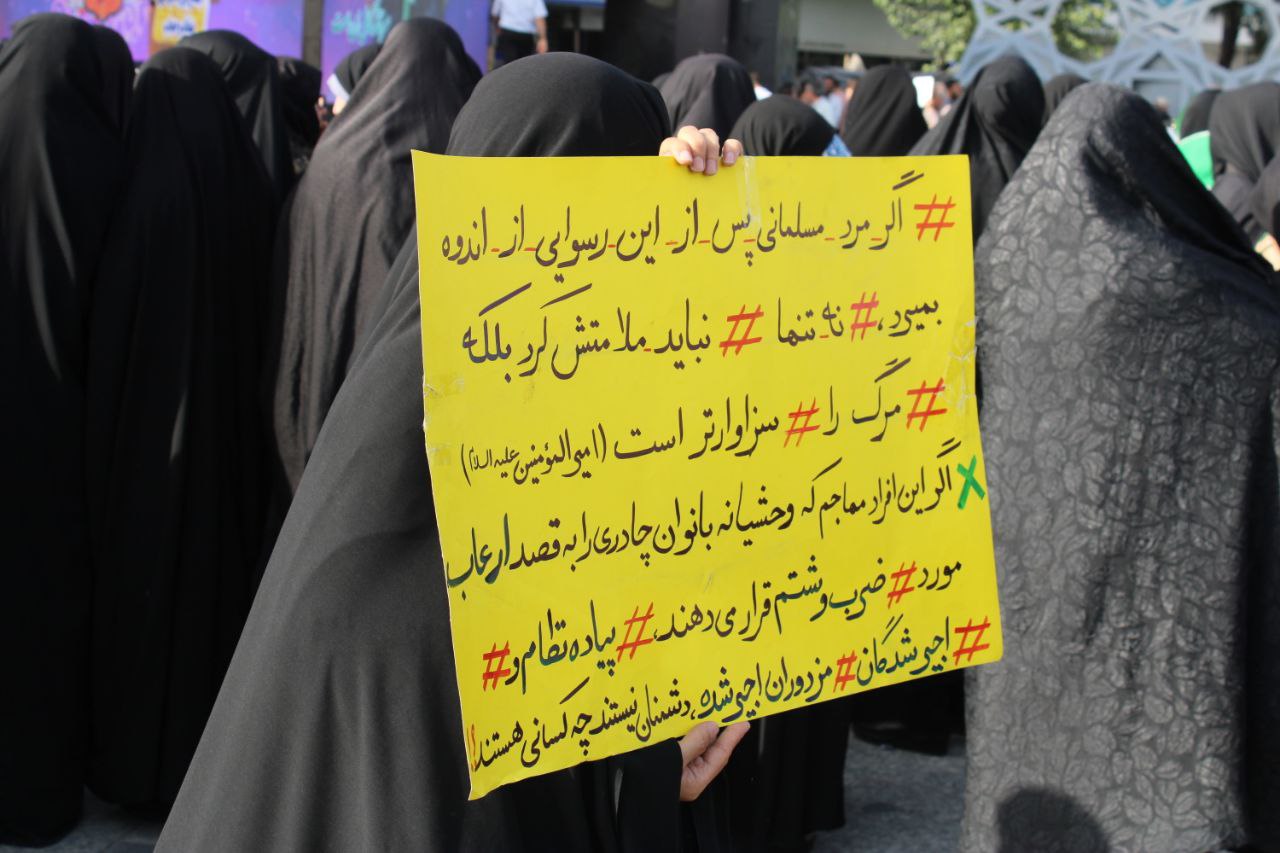 #اگر_مرد_مسلمانی_پس_از_این_رسوایی_از_اندوه
بمیرد،#نه_تنها #نباید_ملامتش کرد بلکه
#مرگ را #سزاوارتر است (امیرالمؤمنین علیه السلام)
X اگر این افراد مهاجم که وحشیانه بانوان چادری را به قصد ارعاب
مورد #ضرب و شتم قرار می دهند، #پیاده نظام و #
#اجیر شدگان #مزدوران اجیر شده، دشمنان نیستند چه کسانی هستند!!